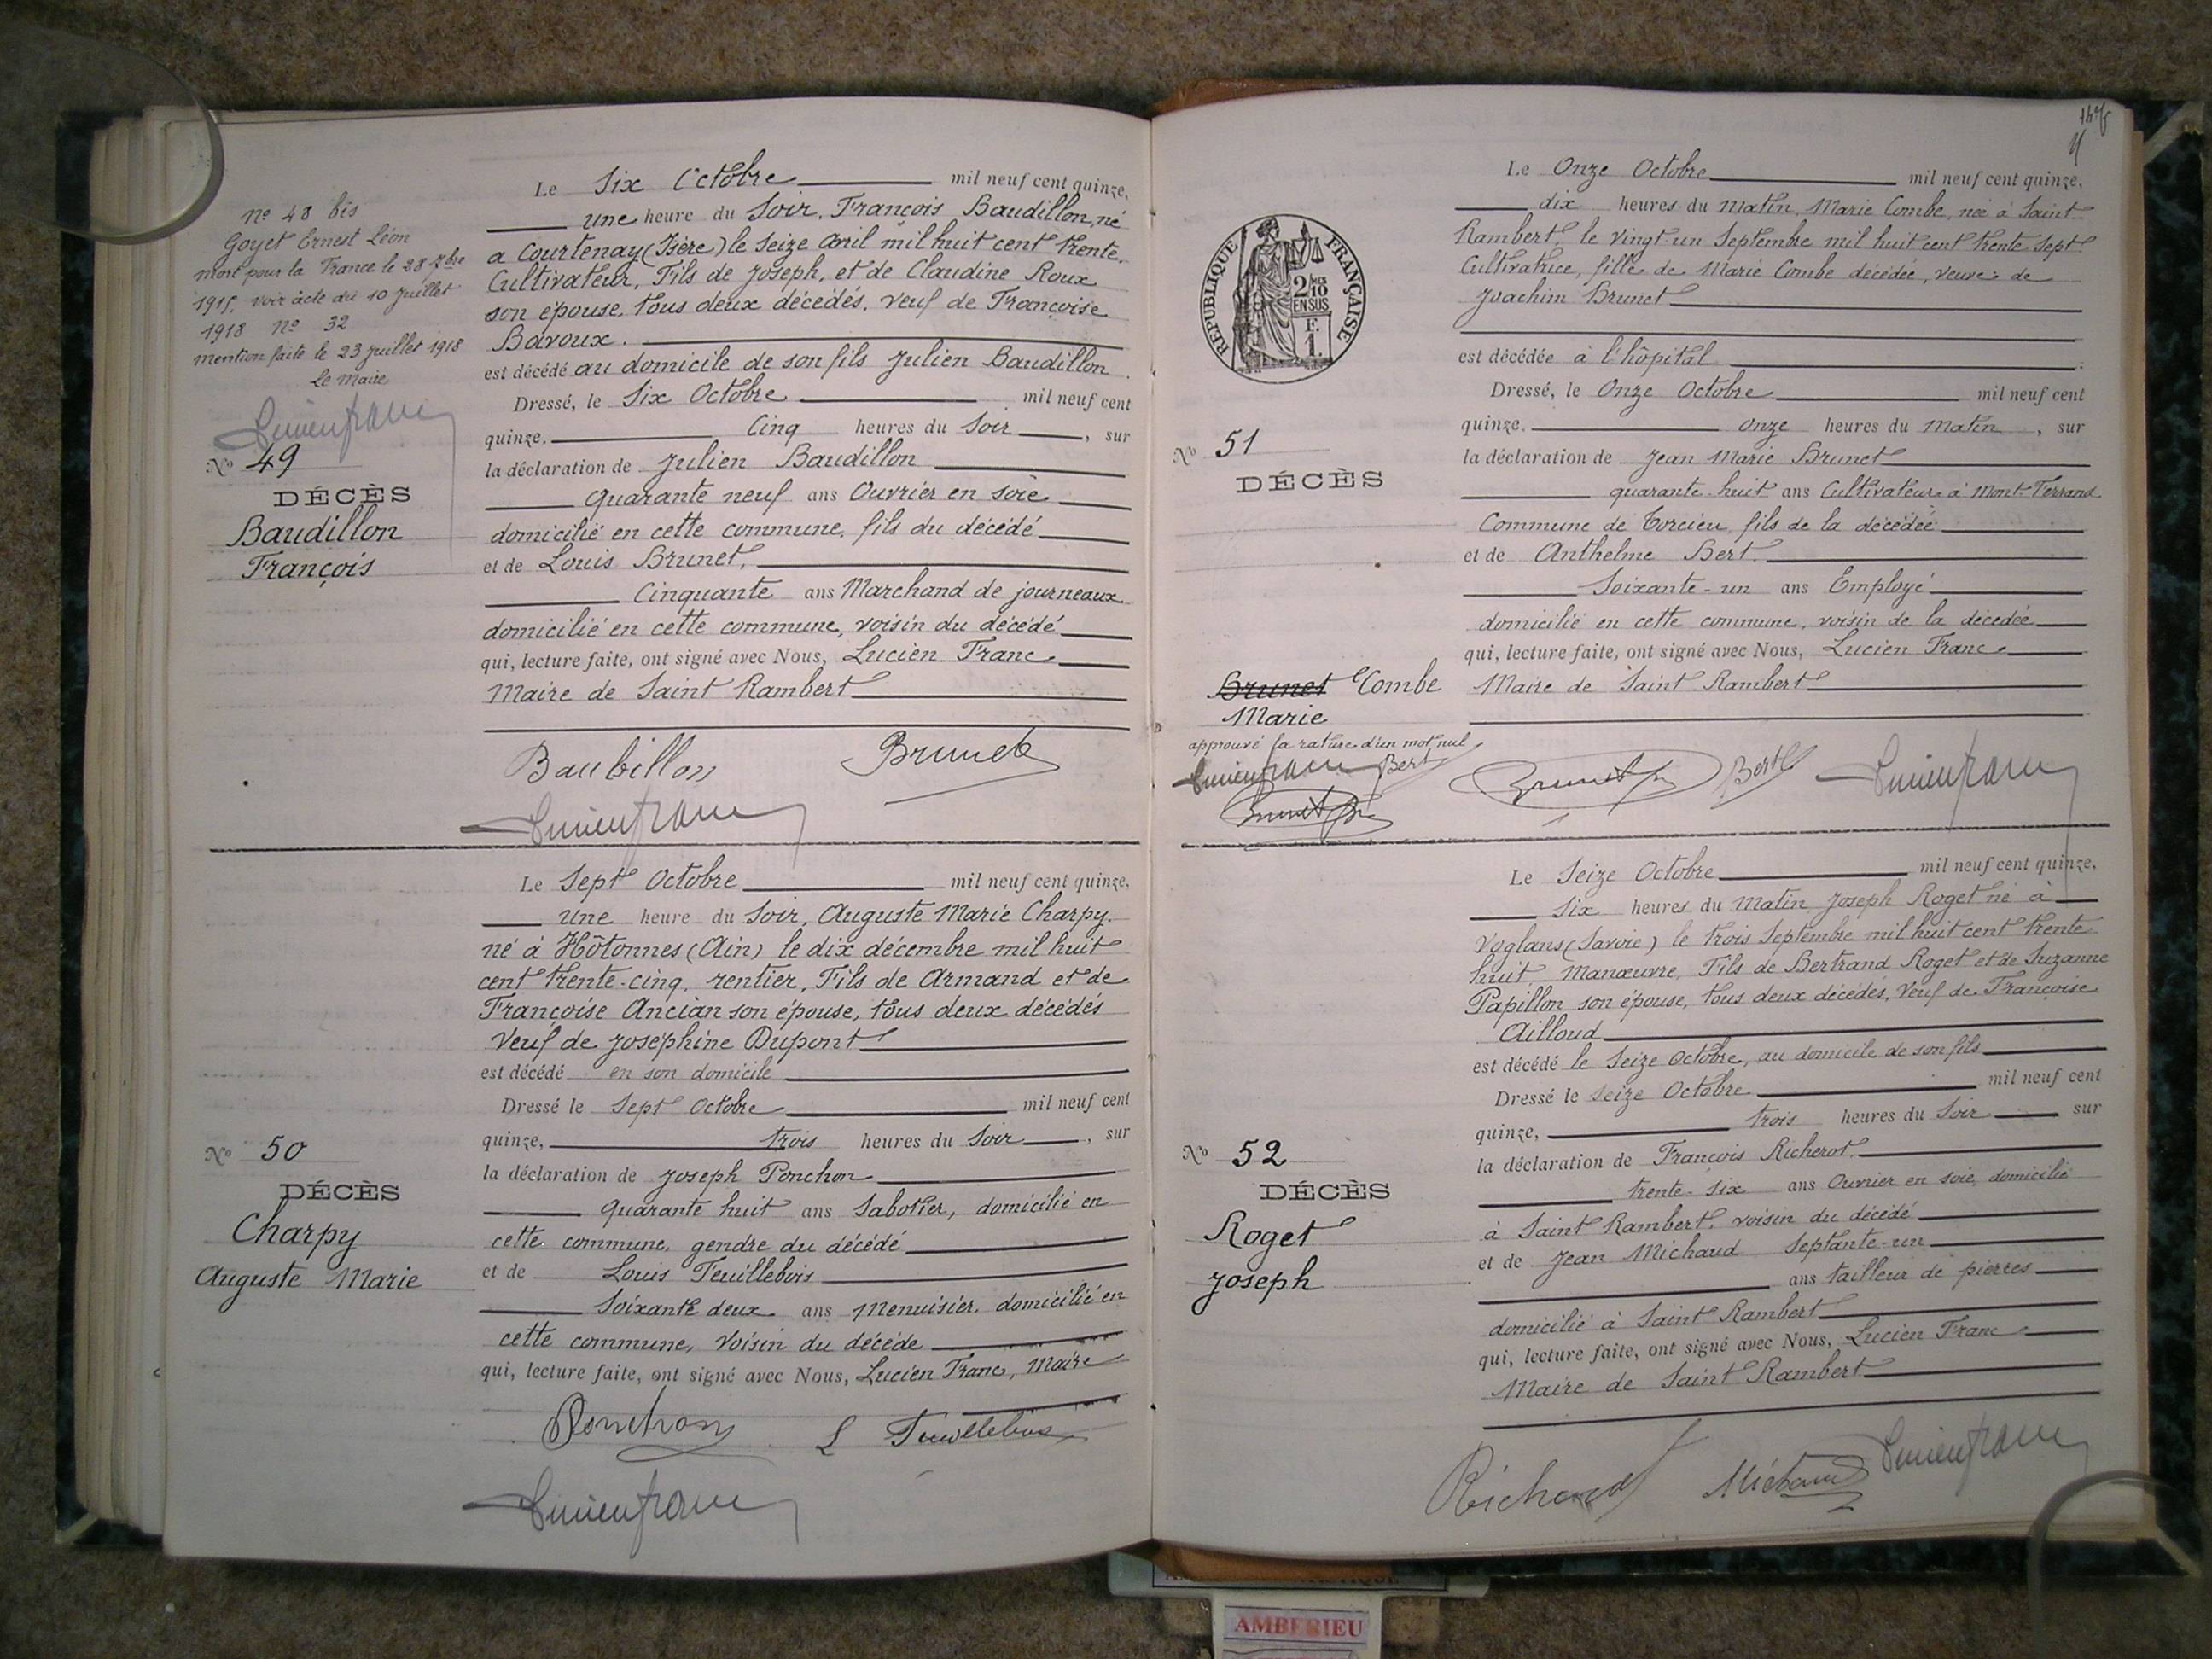 nº 48 bis
Goyet Ernest Léon
mort pour la France le 28 7bre
1915, voir acte du 10 Juillet
1918 nº 32
mention faite le 23 Juillet 1918
Le Maire
Lucien Franc
Nº 49
DÉCÈS
Baudillon
François
Le Six Octobre mil neuf cent quinze,
une heure du Soir, François Baudillon, né
a Courtenay (Isère) le Seize Avril mil huit cent trente,
Cultivateur, Fils de Joseph, et de Claudine Roux
son épouse, tous deux décédés, veuf de Françoise
Bavoux.
est décédé au domicile de son fils Julien Baudillon
Dressé, le Six Octobre mil neuf cent
quinze, Cinq heures du Soir, sur
la déclaration de Julien Baudillon
quarante neuf ans Ouvrier en soie
domicilié en cette commune, fils du décédé
et de Louis Brunet,
Cinquante ans Marchand de journeaux
domicilié en cette commune, voisin du décédé
qui, lecture faite, ont signé avec Nous, Lucien Franc
Maire de Saint Rambert
Baubillon Brunet
Lucien Franc
Nº 50
DÉCÈS
Charpy
Auguste Marie
Le Sept Octobre mil neuf cent quinze,
une heure du Soir, Auguste Marie Charpy.
né à Hôtonnes (Ain) le dix décembre mil huit
cent trente-cinq, rentier, Fils de Armand et de
Françoise Ancian son épouse, tous deux décédés
Veuf de Joséphine Dupont
est décédé en son domicile
Dressé le Sept Octobre mil neuf cent
quinze, trois heures du Soir, sur
la déclaration de Joseph Ponchon
quarante huit ans Sabotier, domicilié en
cette commune, gendre du décédé
et de Louis Feuillebois
Soixante deux ans Menuisier, domicilié en
cette commune, Voisin du décédé
qui, lecture faite, ont signé avec Nous, Lucien Franc, Maire
Ponchon L Feuillebois
Lucien Franc
RÉPUBLIQUE FRANÇAISE
2 10
EN SUS
F.
1.
Nº 51
DÉCÈS
Brunet Combe
Marie
approuvé la rature d'un mot nul
Lucien Franc Bert
Brunet
Le Onze Octobre mil neuf cent quinze,
dix heures du Matin, Marie Combe, née à Saint
Rambert, le vingt-un Septembre mil huit cent trente Sept
Cultivatrice, fille de Marie Combe décédée, veuve de
Joachim Brunet
est décédée à l'hôpital
Dressé, le Onze Octobre mil neuf cent
quinze, onze heures du Matin, sur
la déclaration de Jean Marie Brunet
quarante-huit ans Cultivateur à Mont-Ferrand
Commune de Torcieu, fils de la décédée
et de Anthelme Bert.
Soixante-un ans Employé
domicilié en cette commune, voisin de la décédée
qui, lecture faite, ont signé avec Nous, Lucien Franc
Maire de Saint Rambert
Brunet Bert Lucien Franc
Nº 52
DÉCÈS
Roget
Joseph
Le Seize Octobre mil neuf cent quinze,
Six heures du Matin, Joseph Roget né à
Voglans (Savoie) le trois Septembre mil huit cent trente
huit, Manœuvre, Fils de Bertrand Roget et de Suzanne
Papillon son épouse, tous deux décédés, Veuf de Françoise
Ailloud
est décédé le Seize Octobre, au domicile de son fils
Dressé le Seize Octobre mil neuf cent
quinze, trois heures du Soir sur
la déclaration de François Richerot.
trente-six ans Ouvrier en soie, domicilié
à Saint Rambert, voisin du décédé
et de Jean Michaud Septante-un
ans tailleur de pierres
domicilié à Saint Rambert
qui, lecture faite, ont signé avec Nous, Lucien Franc
Maire de Saint Rambert
Michaud Lucien Franc
AMBERIEU